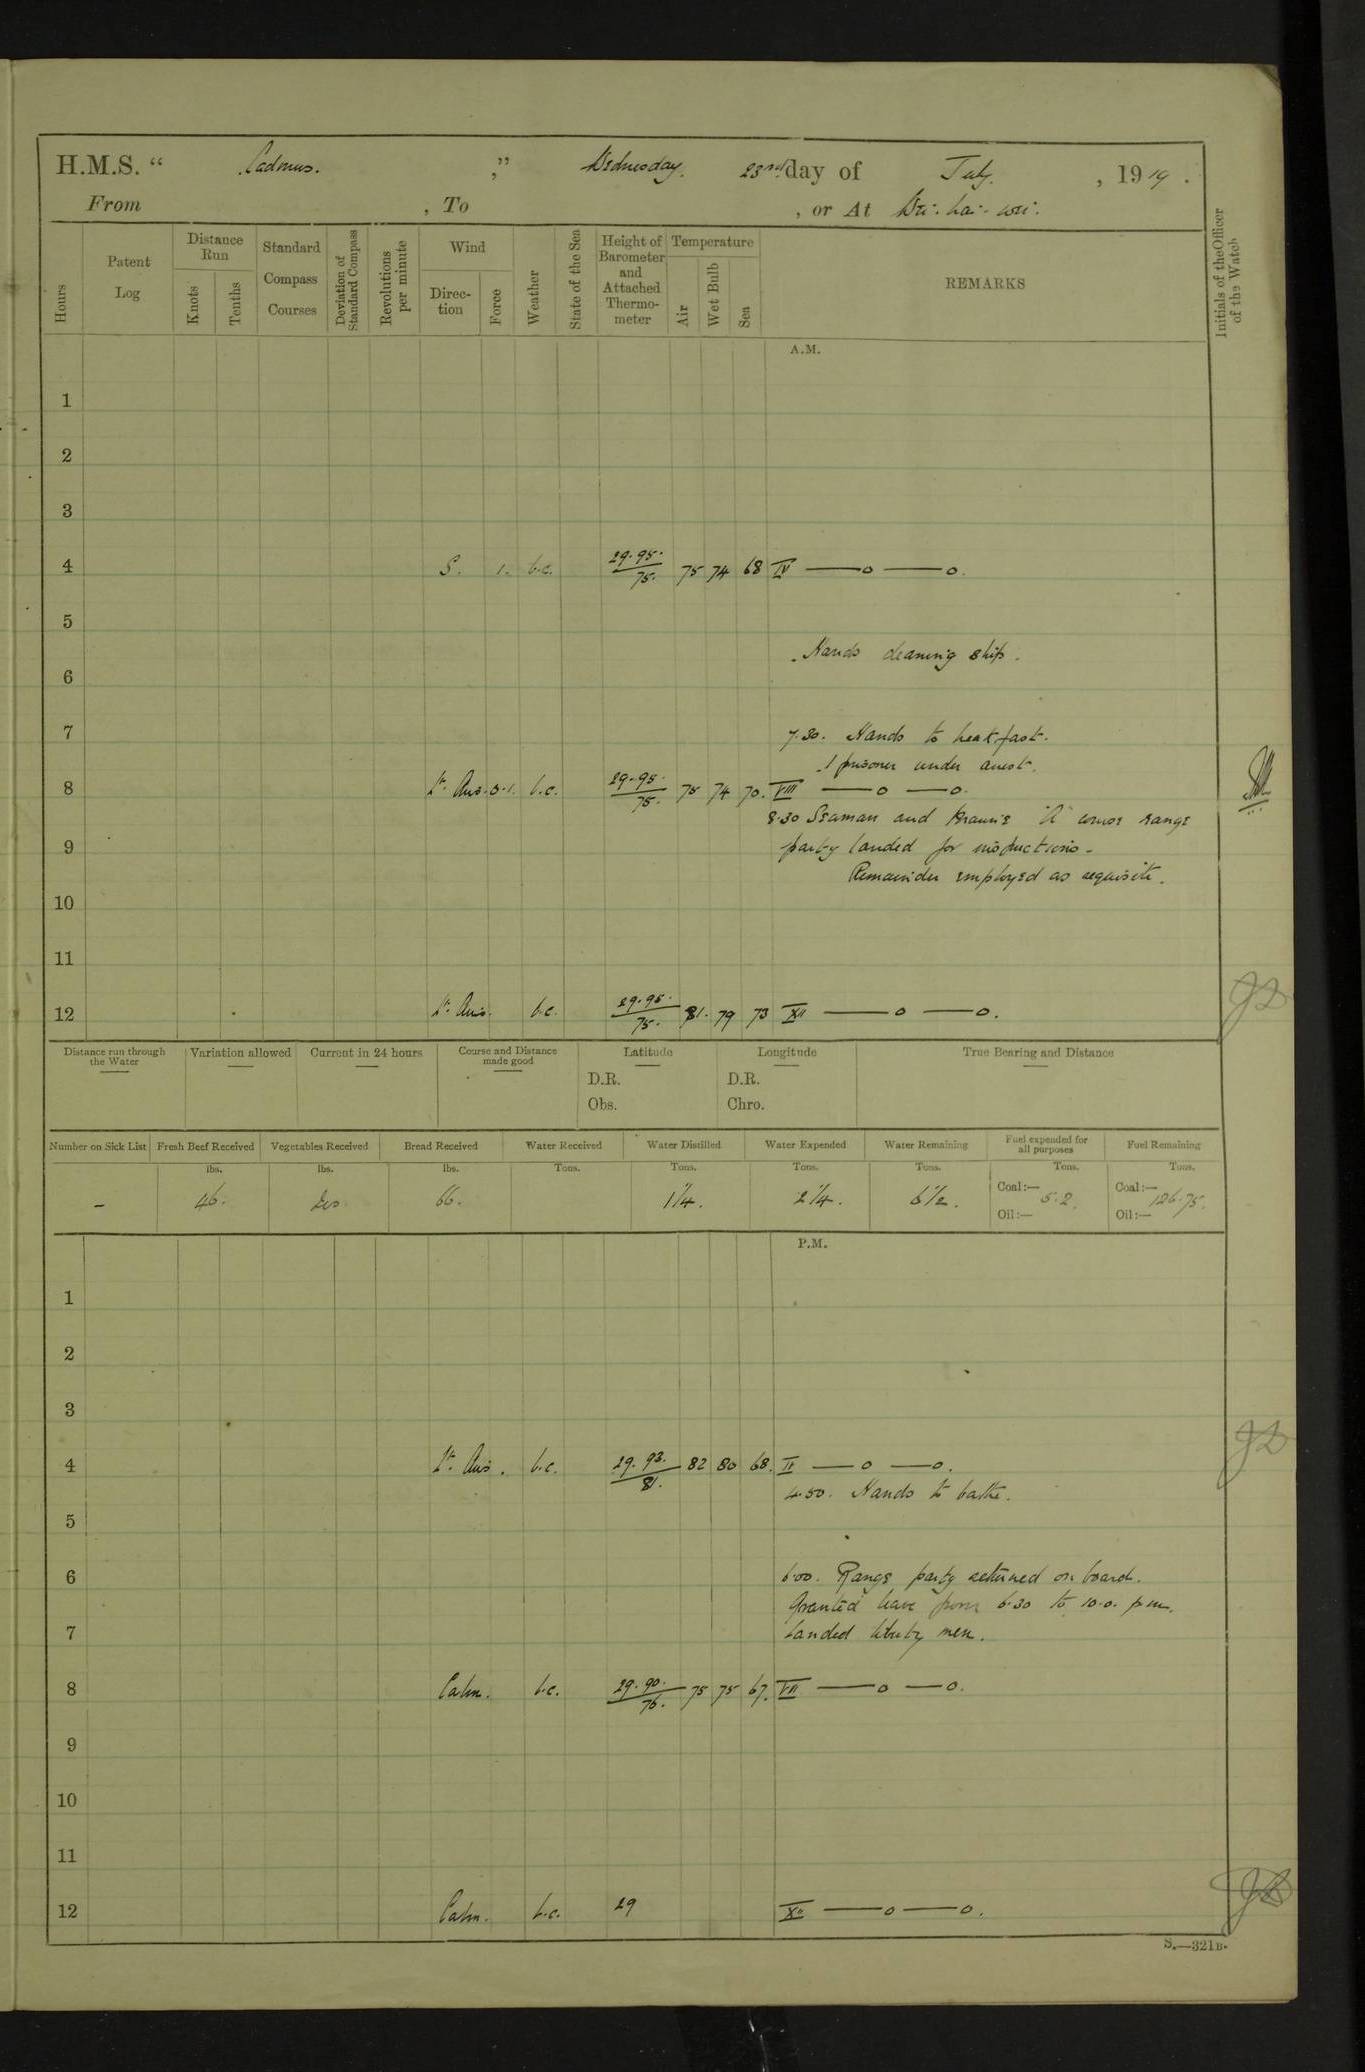 H.M.S. “ Cadmus. ,” Wednesday. 23rd day of July. , 1919 .
From , To , or At Wei-hai-wei.
Hours Patent Log Distance Run Knots Tenths Standard Compass Courses Deviation of Standard Compass Revolutions per minute Wind Direction Force Weather State of the Sea Height of Barometer and Attached Thermometer Temperature Air Wet Bulb Sea REMARKS Initials of the Officer of the Watch
A.M.
1
2
3
4 S. 1. b.c. 29.95. 75. 75 74 68 IV —o —o.
5
Hands cleaning ship.
6
7
7.30. Hands to breakfast.
1 prisoner under arrest.
8 Lt. Airs. 0.1. b.c. 29.95. 75. 75 74 70. VIII —o —o.
8.30 Seaman and Marine "A" range
9 party landed for instructions.
Remainder employed as requisite.
10
11
12 Lt. Airs. b.c. 29.95. 75. 81. 79 73 XII —o —o.
Distance run through the Water Variation allowed Current in 24 hours Course and Distance made good Latitude Longitude True Bearing and Distance
D.R. D.R.
Obs. Chro.
Number on Sick List Fresh Beef Received Vegetables Received Bread Received Water Received Water Distilled Water Expended Water Remaining Fuel expended for all purposes Fuel Remaining
lbs. lbs. lbs. Tons. Tons. Tons. Tons. Tons. Tons.
- 46. 66. 1¼. 2¼. 6½. Coal:— 5.2. Coal:— 126.75.
Oil:— Oil:—
P.M.
1
2
3
4 Lt. Airs. b.c. 29.93. 81. 82 80 68. IV —o —o.
4.50. Hands to bathe.
5
6 6.00. Range party returned on board.
Granted leave from 6.30 to 10.0. p.m.
7 Landed liberty men.
8 Calm. b.c. 29.90. 76. 75 75 67. VIII —o —o.
9
10
11
12 Calm. b.c. 29 XII —o —o.
S.—321B.